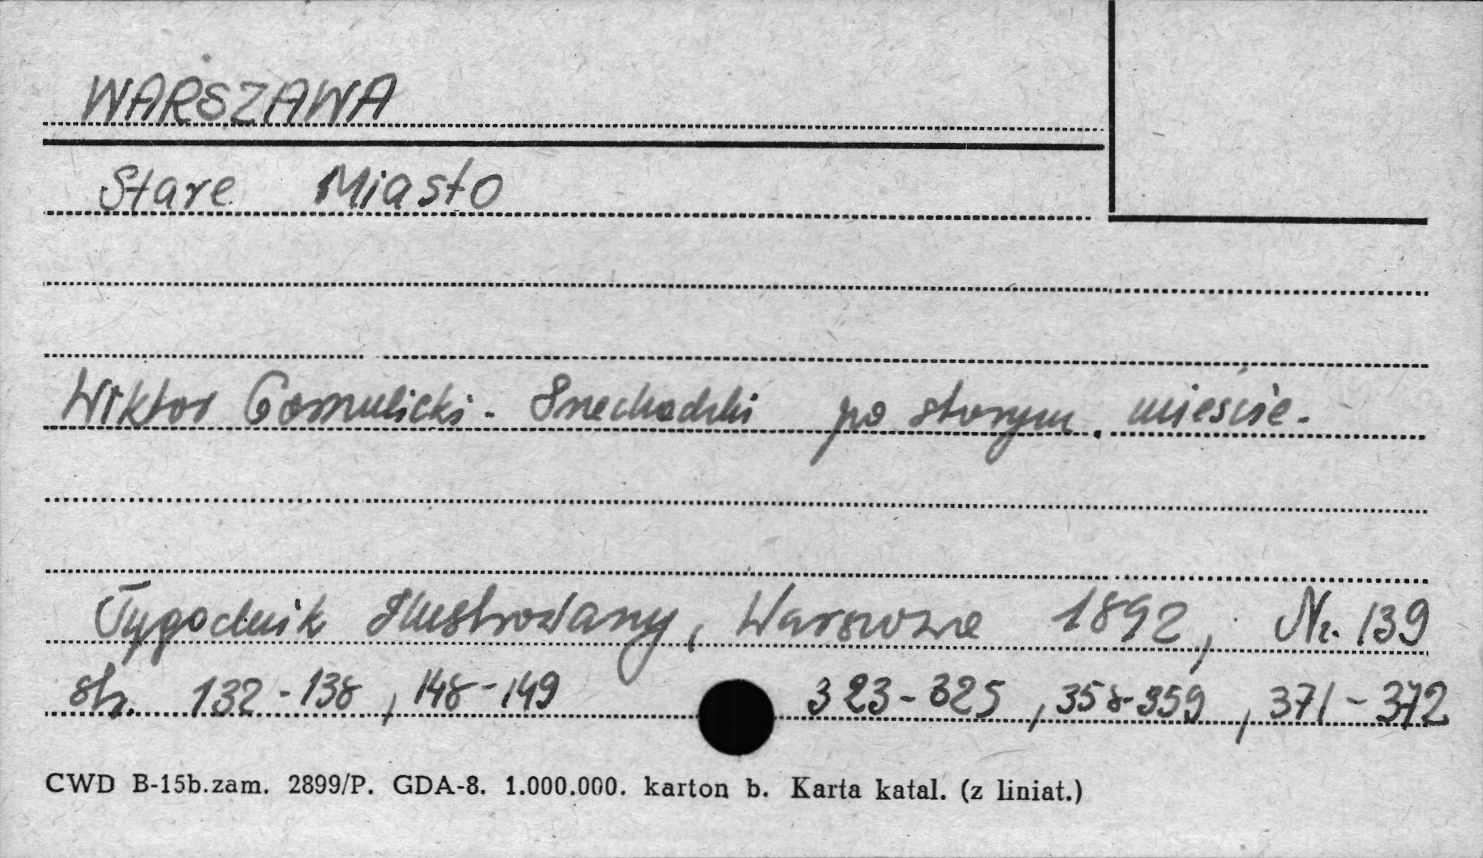 WARSZAWA
Stare Miasto
Wiktor Gomulicki - Przechadzki po starym mieście.
Tygodnik Illustrowany, Warszawa 1892, Nr. 139
str. 132-138, 148-149 323-325, 358-359, 371-372
CWD B-15b.zam. 2899/P. GDA-8. 1.000.000. karton b. Karta katal. (z liniat.)